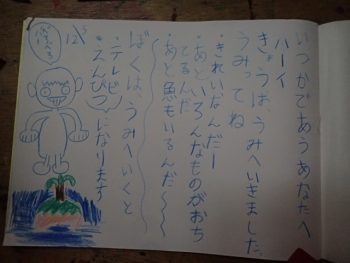 いつかであうあなたへ
ハーイ
きょうは、うみへいきました
うみってね
きれいなんだー
あと、いろんなものがおち
てるんだ
あと魚もいるんだ〜〜〜
ぼくは、うみへいくと
テレビ
えんぴつになります
12/5